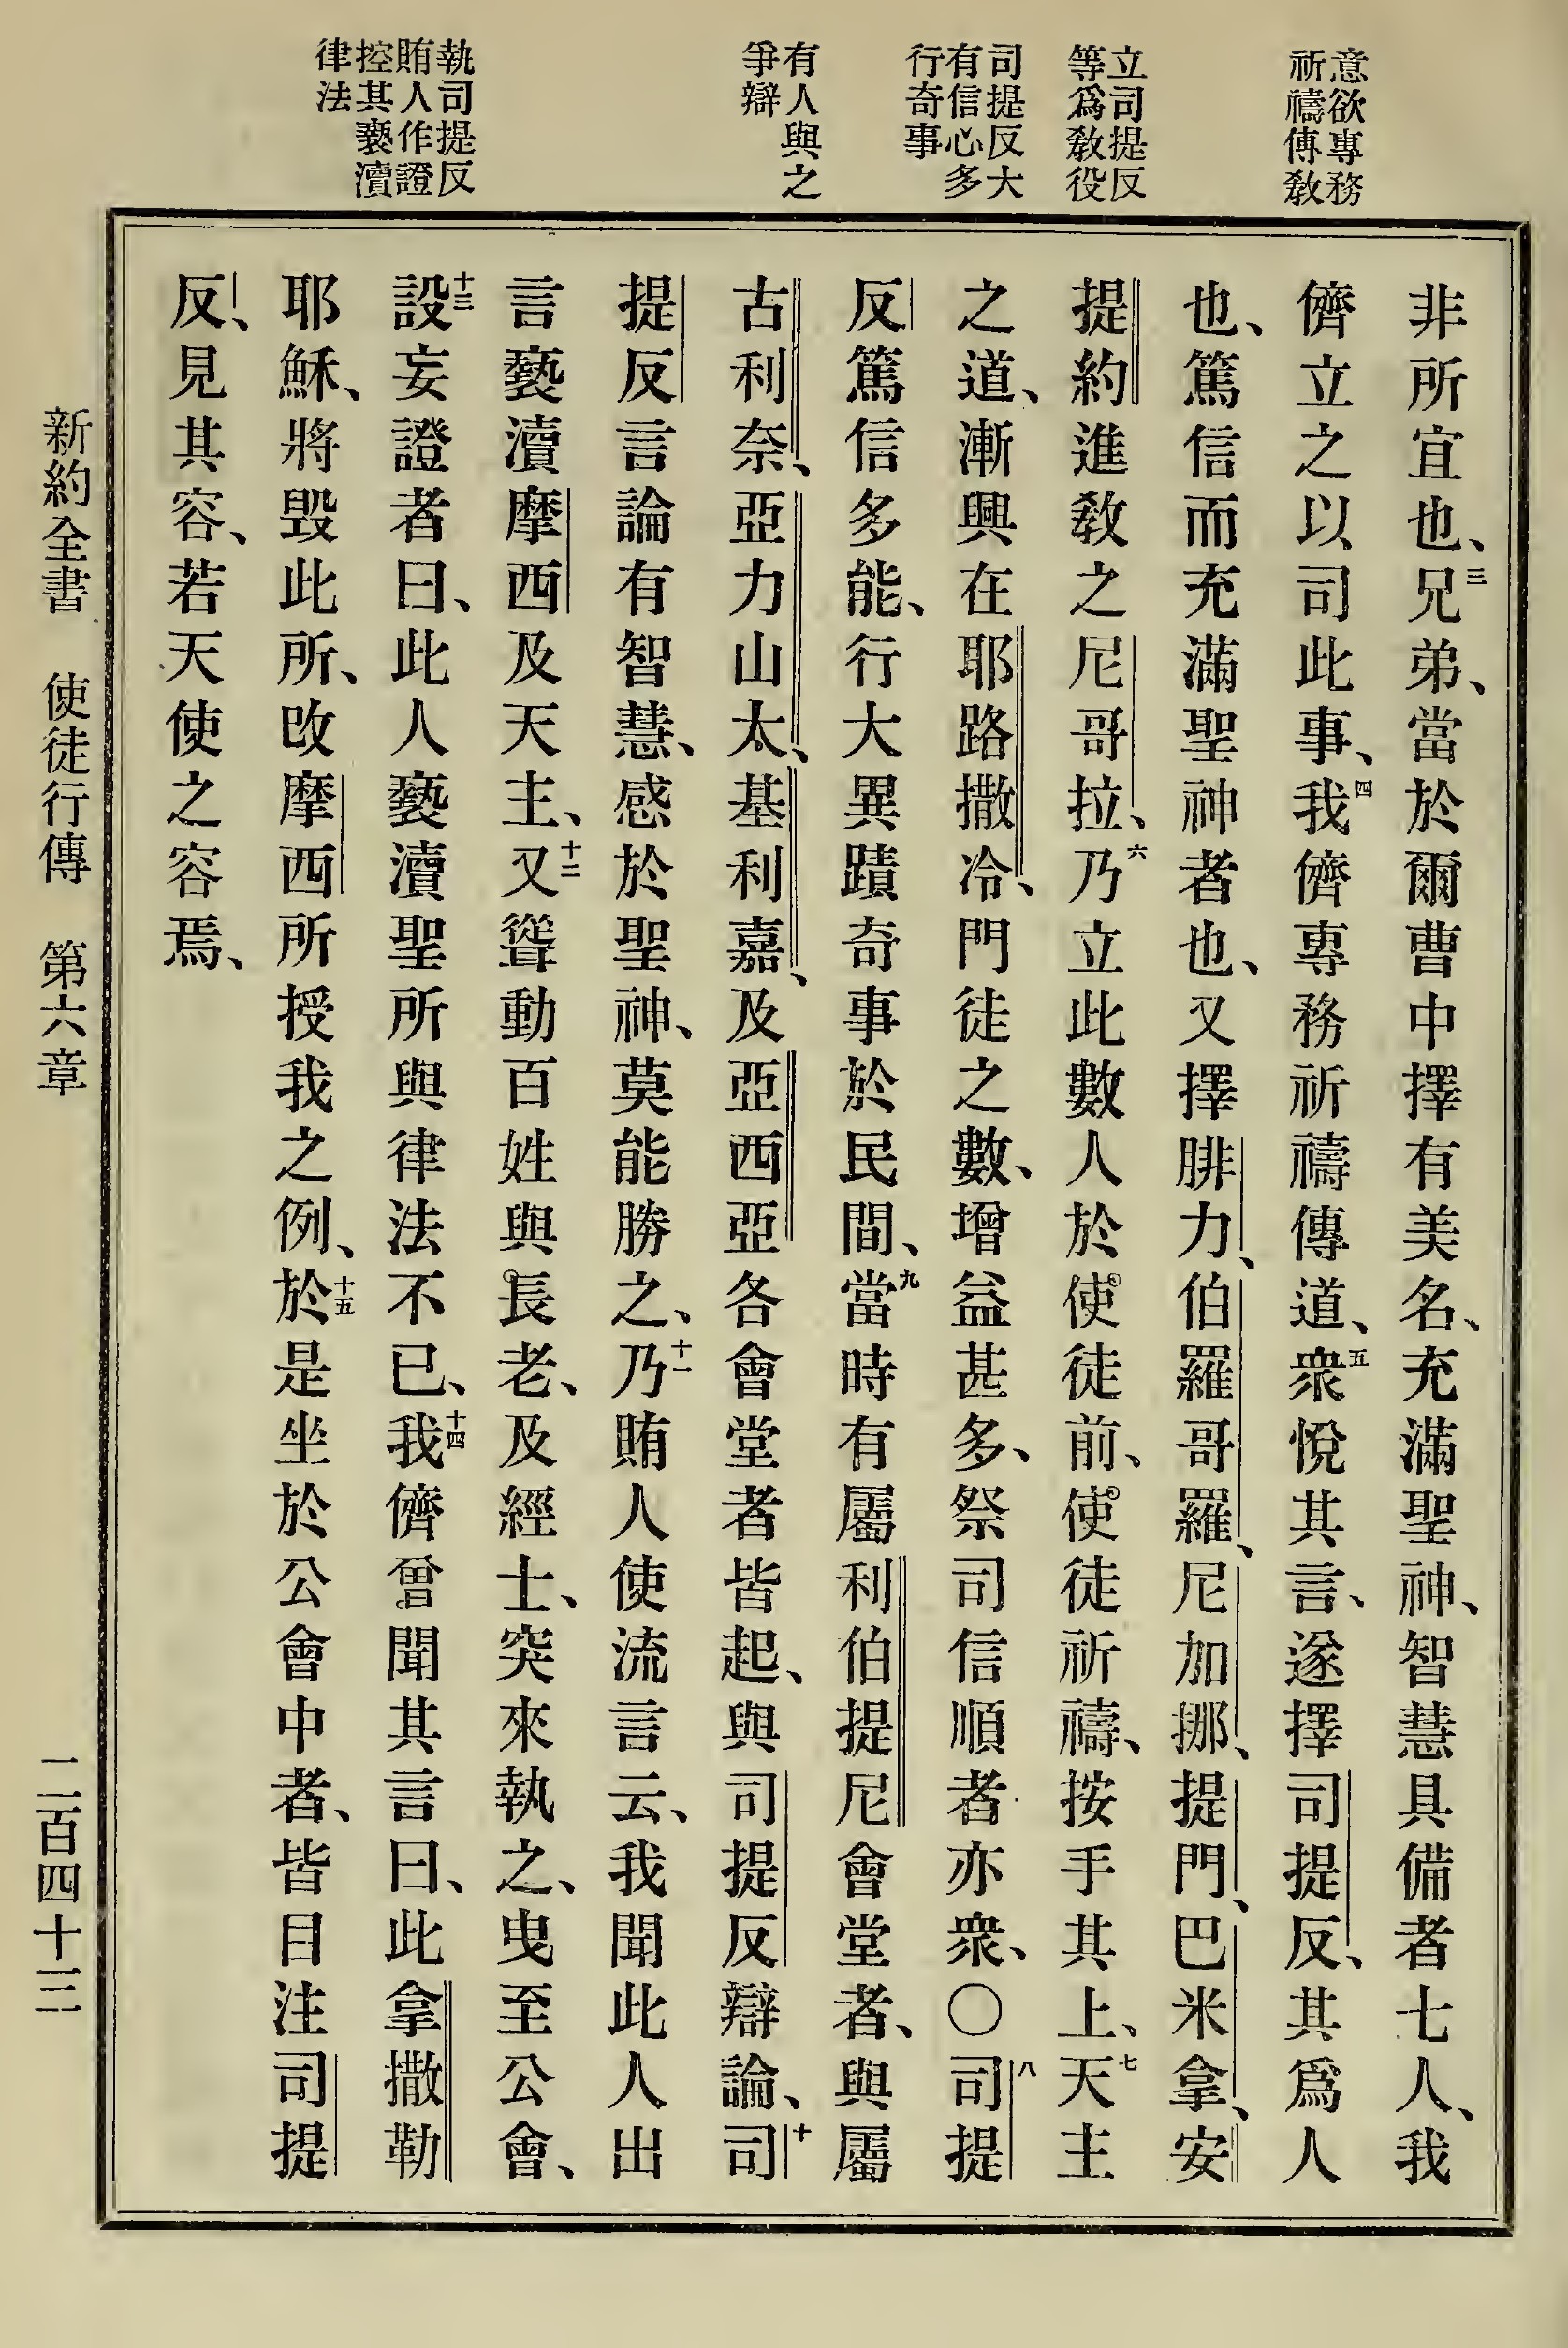 意欲專務
祈禱傳敎
立司提反
等爲敎役
司提反大
有信心多
行奇事
有人與之
爭辯
執司提反
賄人作證
控其褻瀆
律法
非所宜也、三兄弟、當於爾曹中擇有美名、充滿聖神、智慧具備者七人、我
儕立之以司此事、四我儕專務祈禱傳道、五衆悅其言、遂擇司提反、其爲人
也、篤信而充滿聖神者也、又擇腓力、伯羅哥羅、尼加挪、提門、巴米拿、安
提約進敎之尼哥拉、六乃立此數人於使徒前、使徒祈禱、按手其上、七天主
之道、漸興在耶路撒冷、門徒之數、增益甚多、祭司信順者亦衆、〇八司提
反篤信多能、行大異蹟奇事於民間、九當時有屬利伯提尼會堂者、與屬
古利奈、亞力山太、基利嘉、及亞西亞各會堂者皆起、與司提反辯論、十司
提反言論有智慧、感於聖神、莫能勝之、十一乃賄人使流言云、我聞此人出
言褻瀆摩西及天主、十二又聳動百姓與長老、及經士、突來執之、曳至公會、
十三設妄證者曰、此人褻瀆聖所與律法不已、十四我儕曾聞其言曰、此拿撒勒
耶穌、將毀此所、改摩西所授我之例、十五於是坐於公會中者、皆目注司提
反、見其容、若天使之容焉、
新約全書 使徒行傳 第六章 二百四十三